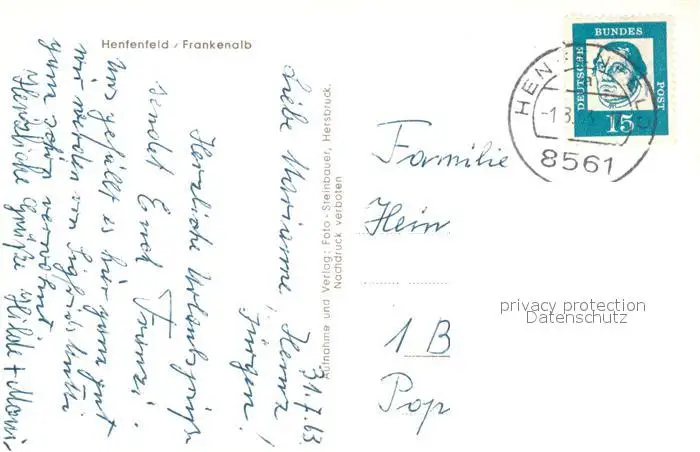 Henfenfeld / Frankenalb
31.7.63
Liebe Marianne, Heinz
Jürgen!
Herzliche Urlaubsgrüße
sendet Euch Franzi.
Uns gefällt es hier ganz gut
wir werden von
ganz schön verwöhnt
Herzliche Grüße Hilde +
Aufnahme und Verlag: Foto-Steinbauer, Hersbruck.
Nachdruck verboten
DEUTSCHE
BUNDES
POST
15
8561
Familie
Hein
1 B
Pop
privacy protection
Datenschutz